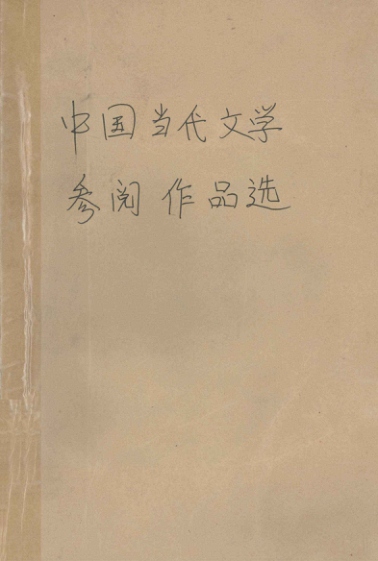 中国当代文学
参阅作品选